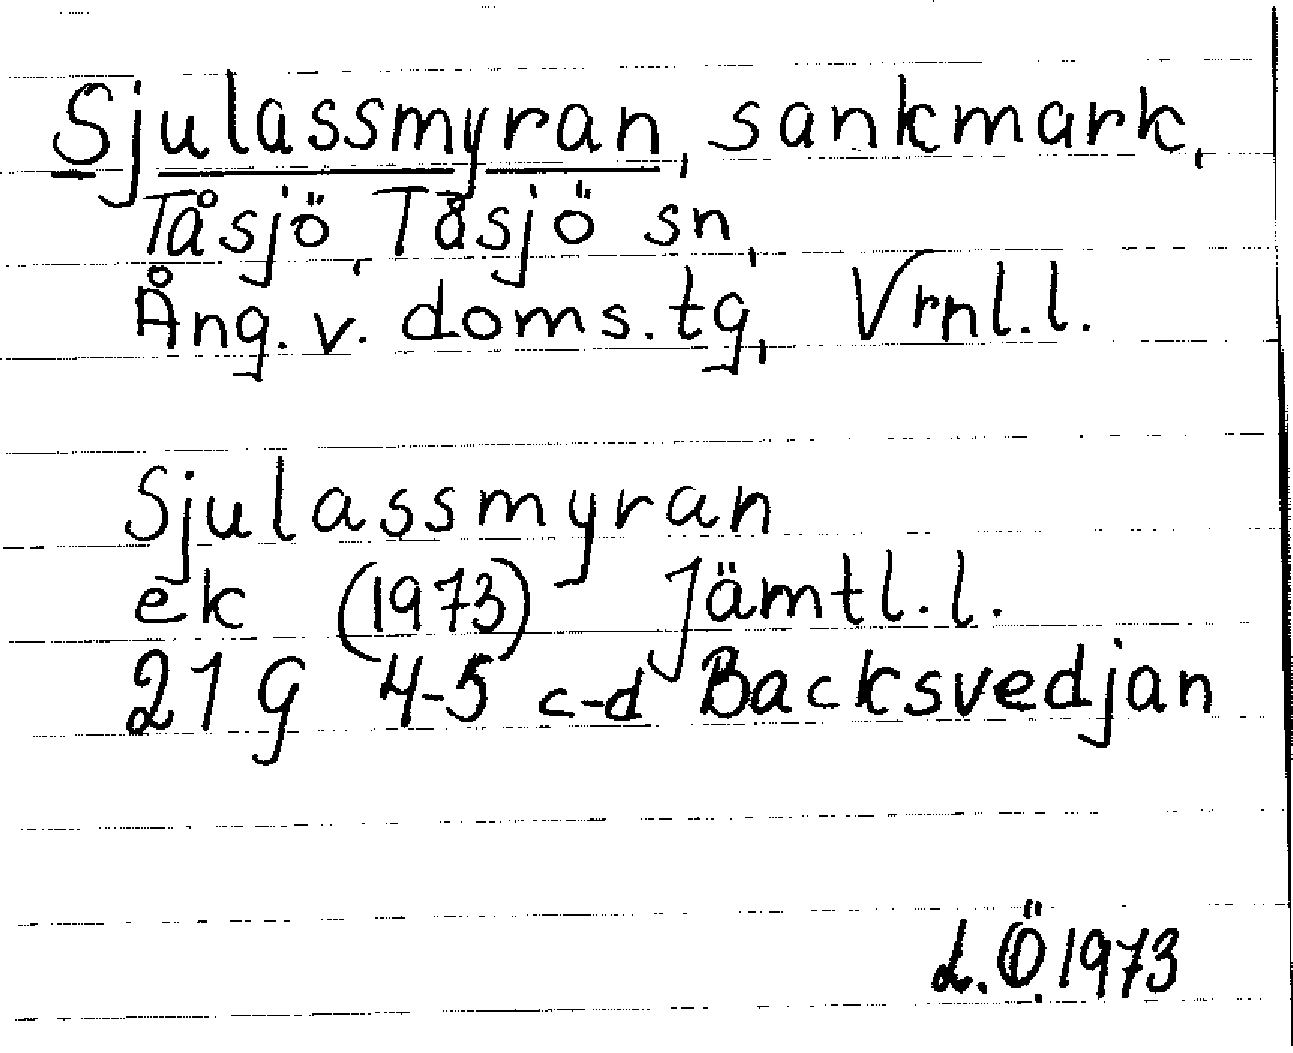 Sjulassmyran, sankmark,
Tåsjö, Tåsjö sn,
Ång. v. doms.tg, Vrnl.l.
Sjulassmyran
ek (1973) Jämtl.l.
21 G 4-5 c-d Backsvedjan
L.Ö. 1973